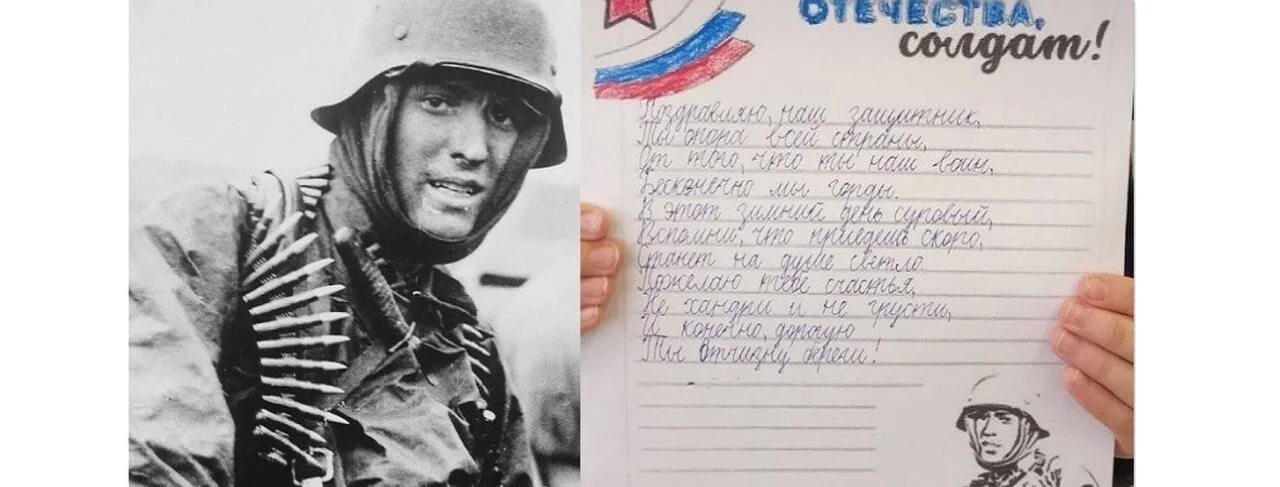 ОТЕЧЕСТВА,
солдат!
Поздравляю, наш защитник,
Ты опора всей страны,
От того, что ты наш воин,
Бесконечно мы горды.
В этот зимний день суровый,
Вспомни, что приедешь скоро,
Станет на душе светло.
Пожелаю тебе счастья,
Не хандри и не грусти,
И конечно, дорогую
Ты отчизну береги!